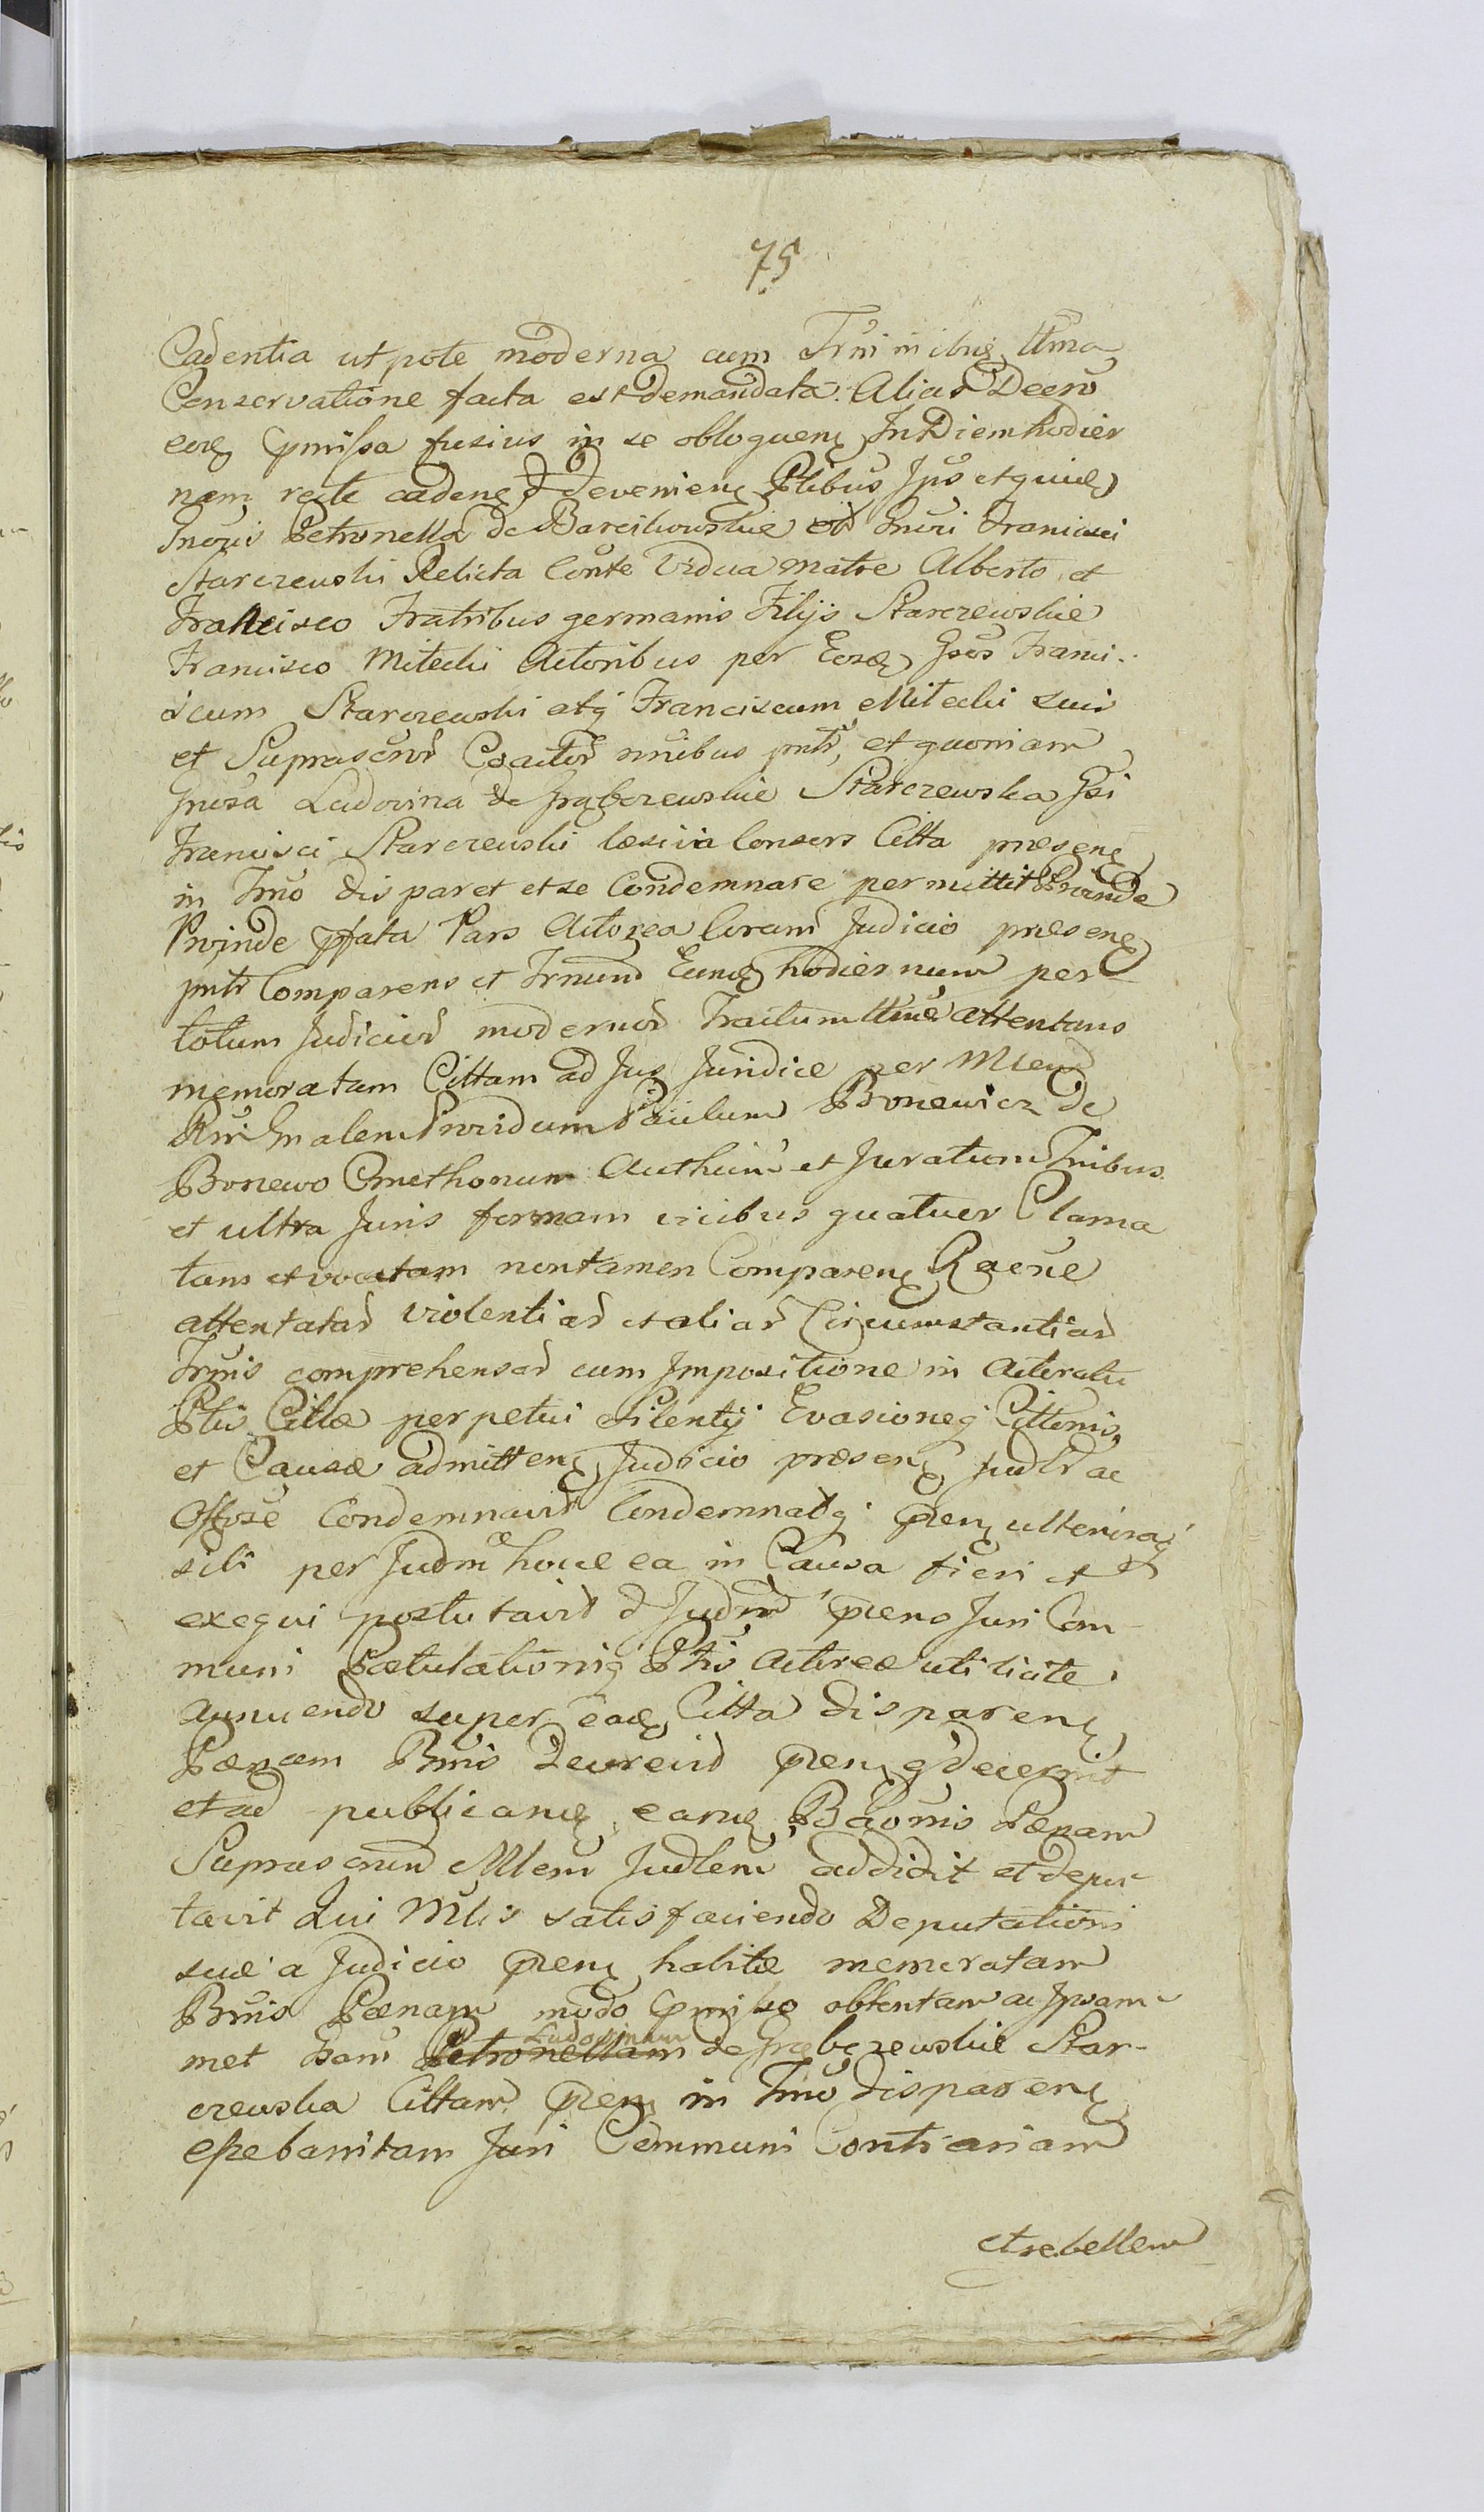 75
Cadentia utpote moderna cum Trminibus Ulma
Conservatione facta est demandata. Alias Decro
eoq pmissa fusius in se obloquen In Diem hodier
nam recte caden & devenien Ptibus Ipis et quidem
Gnosi Petronella de Barcikowskie olim Gnosi Francisci
Starczewski Relicta Conte Vidua matre Alberto et
Francisco Fratribus germanis Filijs Starczewskie
Francisco Mitecki Actoribus per Eosdem Gsos Franci-
scum Starczewski atq Franciscum Mitecki suis
et Suprascrod Coactod nnibus pntr, et quoniam
Gnosa Ludovina de Grąbczewskie Starczewska Gsi
Francisci Starczewski lasivia Consors Citta praesen
in Tmo disparet et se Condemnare permittit Proinde
Proinde pfata Pars Actorea Coram Judicio praesen
pntr Comparens et Trnum Eund hodiernum per
totum Judiciod modernod Tractum Ulme attentans
memoratam Cittam ad Jus Juridice per Mlem
Rni Gnalem Providum Paulum Bonewicz de
Bonewo Cmethonum Authum et Juratum Tribus
et ultra Juris formam vicibus quatuor Clama
tam et vocatam non tamen Comparen Raone
attentatad violentiad et aliad Circumstantiad
Trnis comprehensad cum Impositione in Actoratu
Ptis Cittae perpetui Silentij Evasioneq Cittonis
et Causae admitten Judicio praesen Judlr ac
Offose Condemnavit Condemnatq pien ulterioraq
sibi per Judm hocce ea in Causa fieri et
exequi postulavit & Judm piens Juri Com-
muni Postulationiq Ptis Actoreae uti licite
annuendo super ead Citta disparen
Paenam Bnnis Decrevit pien q decernit
et ad publicand eand Baonnis Paenam
Suprascrum Mlem Judlem addidit et depu-
tavit Qui Mlis satisfaciendo Deputationi
suae a Judicio pien habitae memoratam
Bnnis Paenam modo pmisso obtentam ac Ipsam-
met Gsam Petronellam Ludovinam de Grąbczewskie Star-
czewska Cittam pien in Tmo disparen
esse bannitam Juri Communi Contrariam
et rebellem